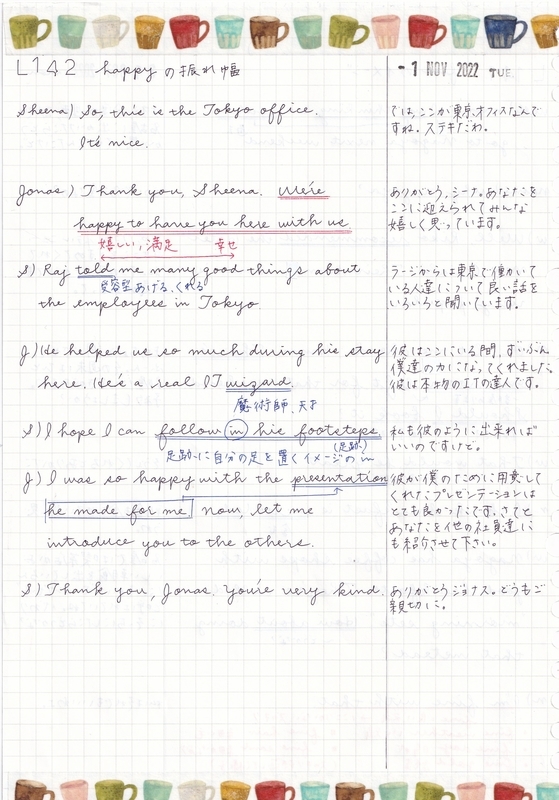 L142 happy の振れ幅
- 1 NOV 2022 TUE.
Sheena) So, this is the Tokyo office.
It's nice.
では、ここが東京オフィスなんで
すね。ステキだわ。
Jonas) Thank you, Sheena. We're
happy to have you here with us.
嬉しい, 満足 幸せ
ありがとう、シーナ。あなたを
ここに迎えられてみんな
嬉しく思っています。
S) Raj told me many good things about
受容型 あげる、くれる
the employees in Tokyo.
ラージからは東京で働いて
いる人達について良い話を
いろいろと聞いています。
J) He helped us so much during his stay
here. He's a real IT wizard.
魔術師、天才
彼はここにいる間、ずいぶん
僕達の力になってくれました。
彼は本物のITの達人です。
S) I hope I can follow in his footsteps.
(足跡)
足跡に自分の足を置くイメージの in
私も彼のように出来れば
いいのですけど。
J) I was so happy with the presentation
he made for me. now, let me
introduce you to the others.
彼が僕のために用意して
くれたプレゼンテーションは
とても良かったです。さてと
あなたを他の社員達に
も紹介させて下さい。
S) Thank you, Jonas. You're very kind.
ありがとうジョナス。どうもご
親切に。